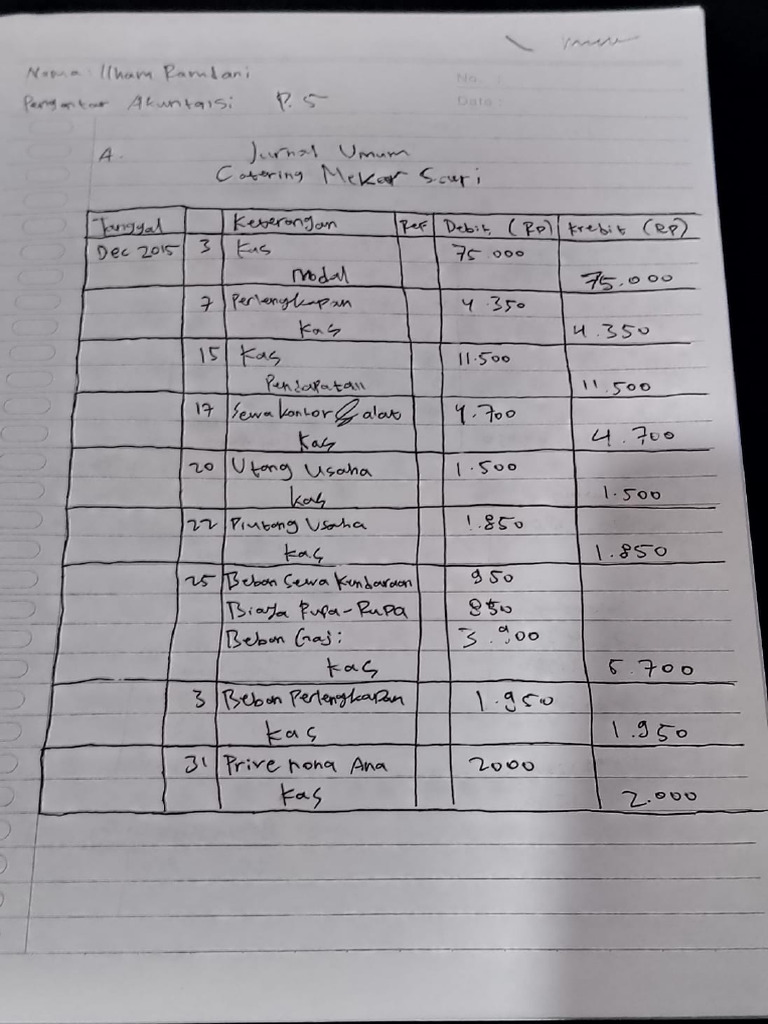 Nama : Ilham Ramdani
No. :
Pengantar Akuntansi P. 5
Date :
A. Jurnal Umum
Catering Mekar Sari
Tanggal Keterangan Ref Debit (Rp) Krebit (Rp)
Dec 2015 3 Kas 75.000
Modal 75.000
7 Perlengkapan 4.350
Kas 4.350
15 Kas 11.500
Pendapatan 11.500
17 Sewa kantor & alat 4.700
Kas 4.700
20 Utang Usaha 1.500
Kas 1.500
22 Piutang Usaha 1.850
Kas 1.850
25 Beban Sewa Kendaraan 950
Biaya Rupa-Rupa 850
Beban Gaji 3.900
Kas 5.700
3 Beban Perlengkapan 1.950
Kas 1.950
31 Prive nona Ana 2000
Kas 2.000